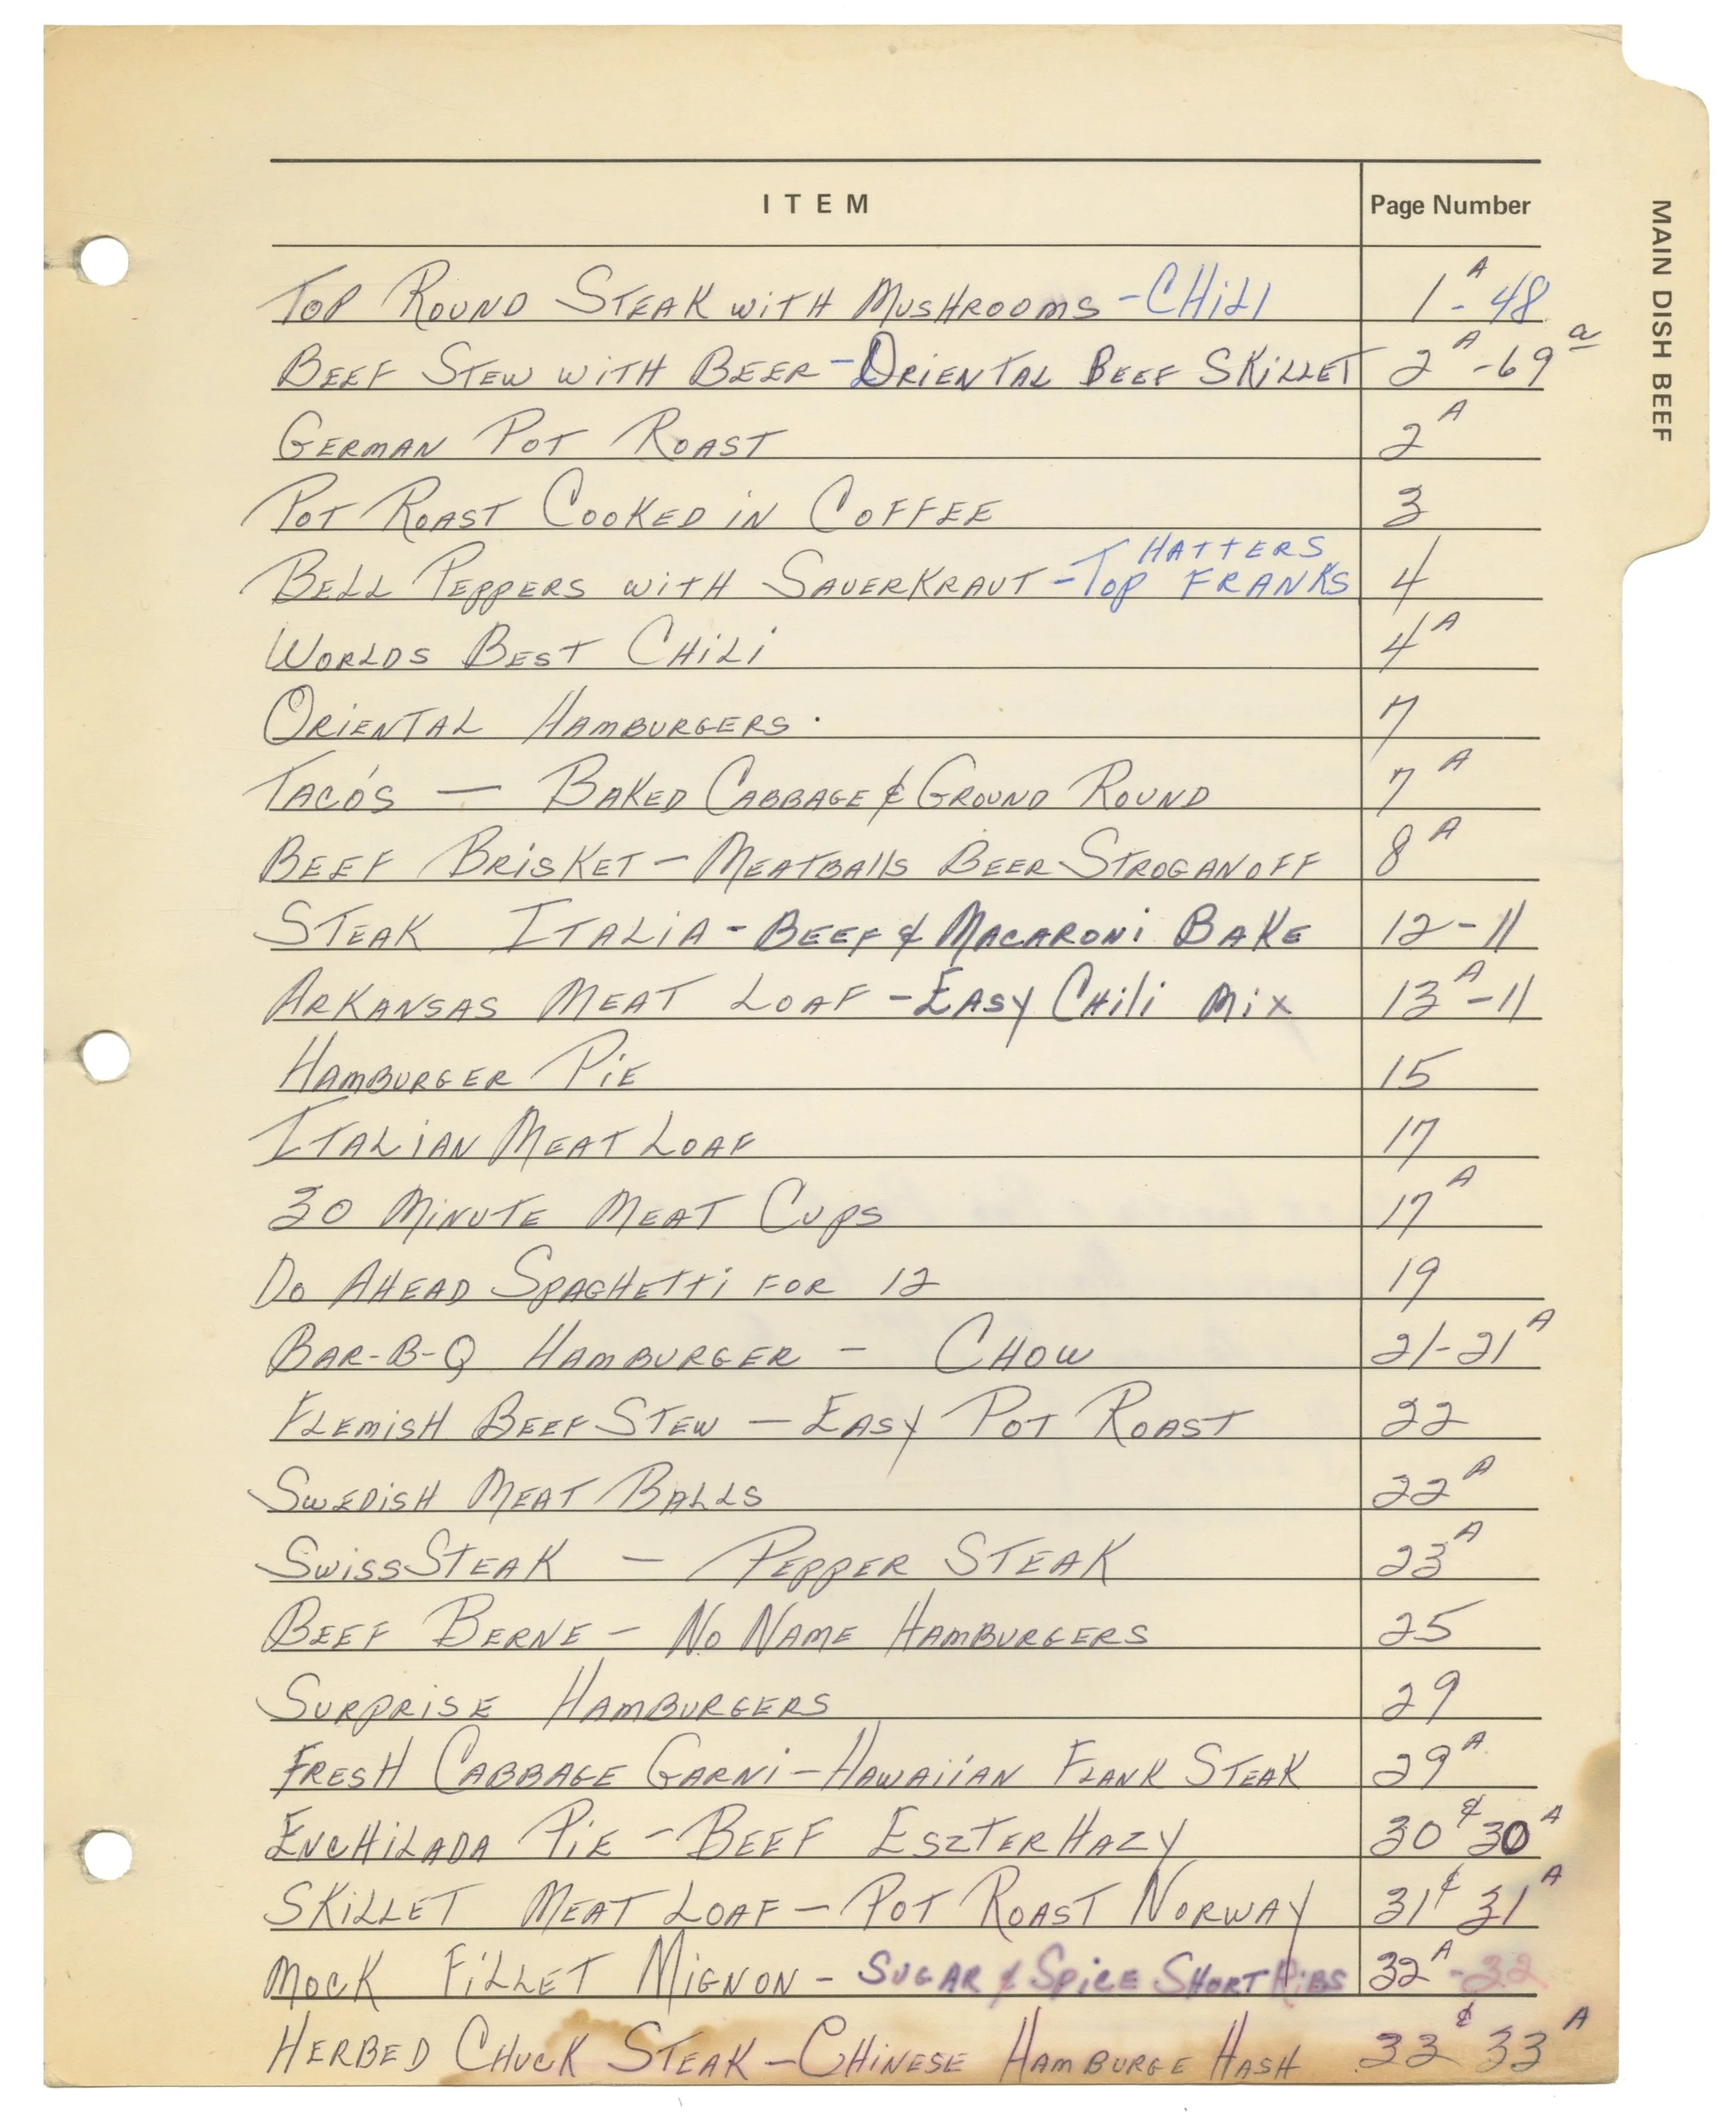 ITEM Page Number
MAIN DISH BEEF
TOP ROUND STEAK WITH MUSHROOMS - CHILI 1A - 48
BEEF STEW WITH BEER - ORIENTAL BEEF SKILLET 2A - 69a
GERMAN POT ROAST 2A
POT ROAST COOKED IN COFFEE 3
HATTERS
BELL PEPPERS WITH SAUERKRAUT - TOP FRANKS 4
WORLDS BEST CHILI 4A
ORIENTAL HAMBURGERS. 7
TACO'S — BAKED CABBAGE & GROUND ROUND 7A
BEEF BRISKET - MEATBALLS BEER STROGANOFF 8A
STEAK ITALIA - BEEF & MACARONI BAKE 12 - 11
ARKANSAS MEAT LOAF - EASY CHILI MIX 13A - 11
HAMBURGER PIE 15
ITALIAN MEAT LOAF 17
30 MINUTE MEAT CUPS 17A
DO AHEAD SPAGHETTI FOR 12 19
BAR-B-Q HAMBURGER - CHOW 21-21A
FLEMISH BEEF STEW - EASY POT ROAST 22
SWEDISH MEAT BALLS 22A
SWISS STEAK — PEPPER STEAK 23A
BEEF BERNE - NO NAME HAMBURGERS 25
SURPRISE HAMBURGERS 29
FRESH CABBAGE GARNI - HAWAIIAN FLANK STEAK 29A
ENCHILADA PIE - BEEF ESZTERHAZY 30 & 30A
SKILLET MEAT LOAF - POT ROAST NORWAY 31 & 31A
MOCK FILLET MIGNON - SUGAR & SPICE SHORT RIBS 32A - 32
HERBED CHUCK STEAK - CHINESE HAMBURGE HASH 33 & 33A